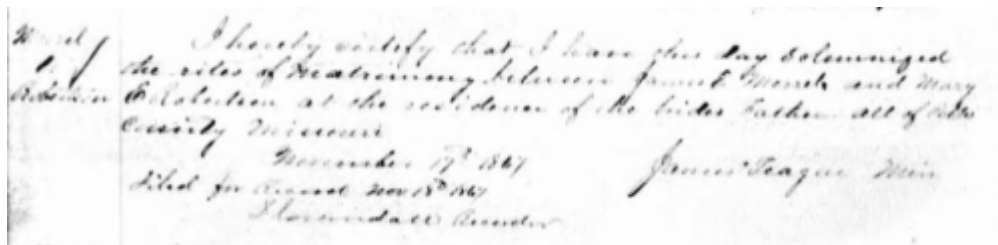 I hereby certify that I have this day Solemnized
the rites of Matrimony between James E and Mary
E Robertson at the residence of the brides Father all of
County Missouri
November 17th 1867
James Teague Min
Filed for Record Nov 18th 1867
Recorder